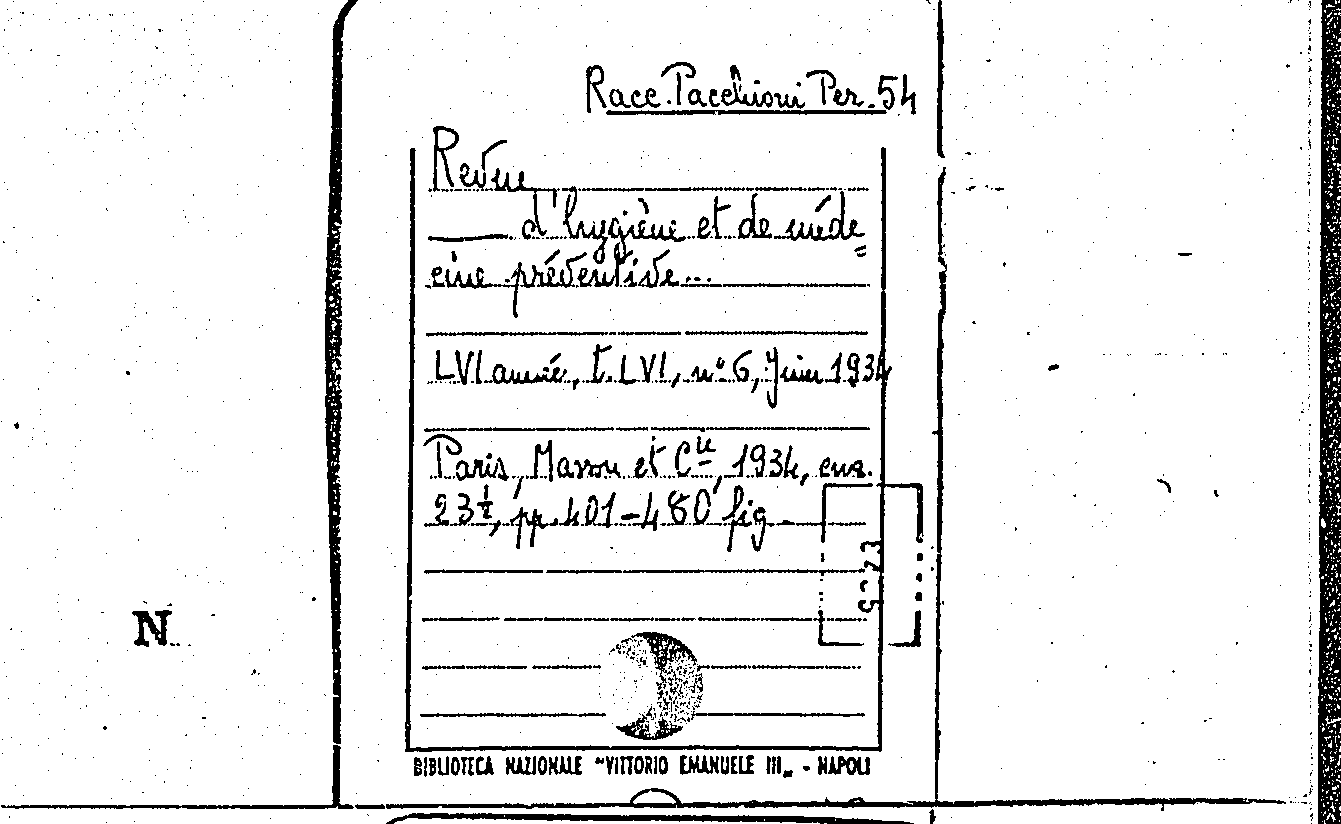 Racc. Pacchioni Per. 54
Revue
—— d'hygiène et de méde=
cine préventive...
LVI année, t. LVI, n° 6, Juin 1934
Paris, Masson et Cie, 1934, cm.
23½, pp. 401-480 fig.
N
BIBLIOTECA NAZIONALE "VITTORIO EMANUELE III„ - NAPOLI